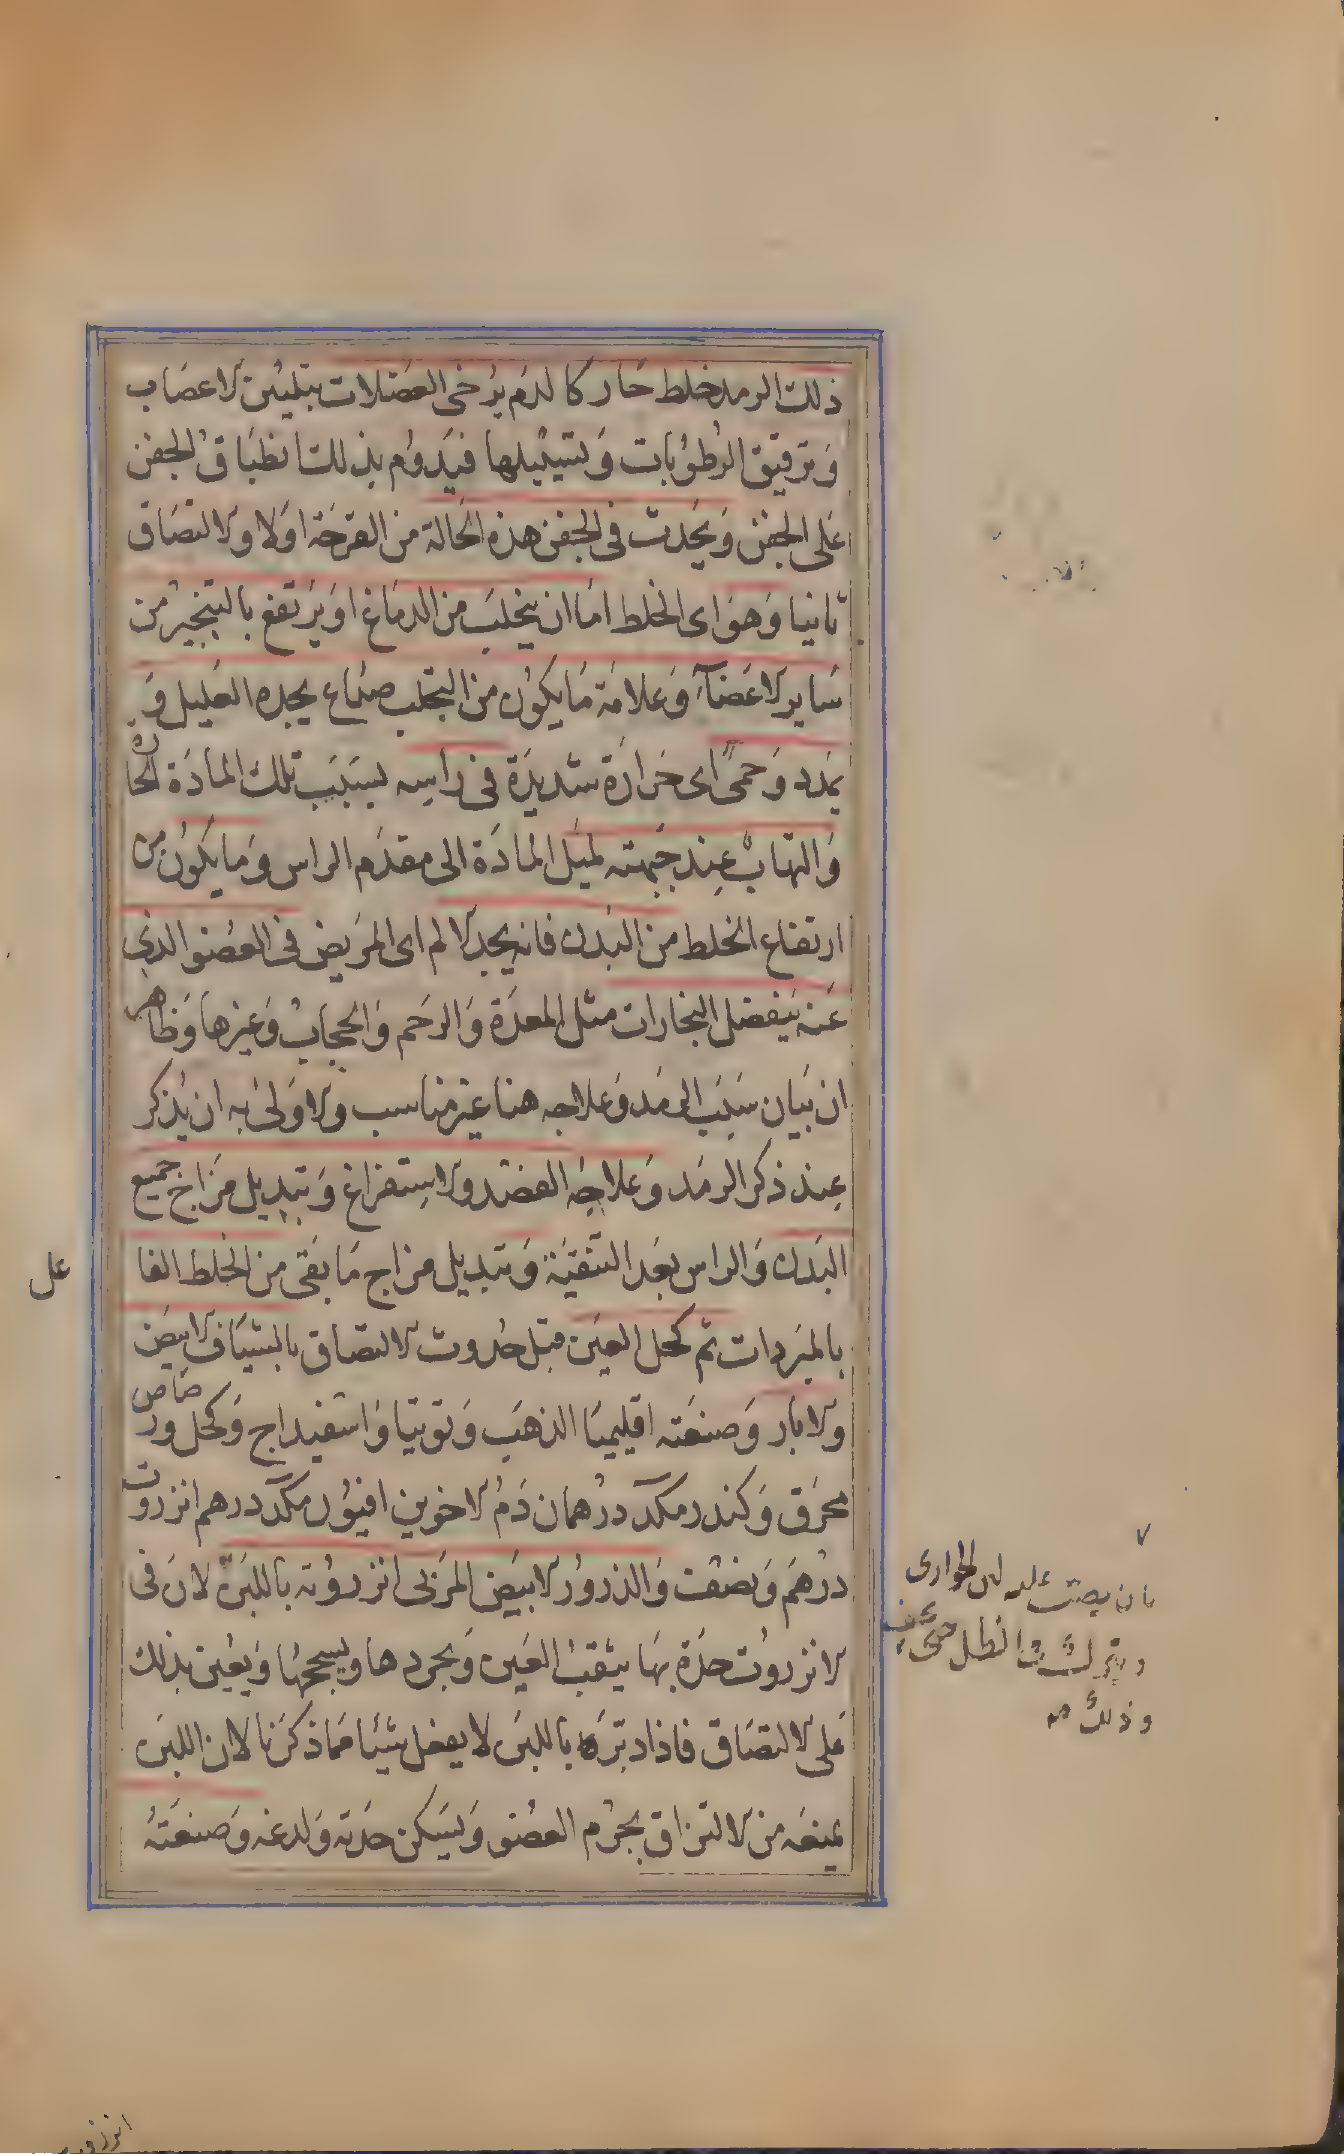 ذلك الرمد خلط حار كالدم يرخى العضلات بتليين الاعصاب
وترقيق الرطوبات وتسييلها فيدوم بذلك انطباق الجفن
على الجفن ويحدث فى الجفن هذه الحالة من القرحة اولا والالتصاق
ثانيا وهو اى الخلط اما ان يتحلب من الدماغ او يرتفع بالتبخير من
ساير الاعضاء وعلامة ما يكون من التحلب صداع يجده العليل و
تمدد وحمى اى حرارة شديدة فى راسه بسبب تلك المادة الحارة
والتهاب عند جبهته لميل المادة الى مقدم الراس وما يكون من
ارتفاع الخلط من البدن فانه يجد الالم اى المريض فى العضو الذى
عنه ينفصل البخارات مثل المعدة والرحم والحجاب وغيرها وظاهر
ان بيان سبب الرمد وعلاجه هنا غير مناسب والاولى به ان يذكر
عند ذكر الرمد وعلاجه الفصد والاستفراغ وتبديل مزاج جميع
البدن والراس بعد التنقية وتبديل مزاج ما بقى من الخلط الفا
عل
بالمبردات ثم كحل العين قبل حدوث الالتصاق بالشياف الابيض
والابار وصنعته اقليميا الذهب وتوتيا واسفيداج وكحل ورصاص
محرق وكندر مكد درهمان دم الاخوين افيون مكد درهم انزروت
درهم ونصف والذرور الابيض المربى انزروته باللبن لان فى
الانزروت حدة بها يثقب العين ويجردها ويسحجها ويعين بذلك
على الالتصاق فاذا دبره باللبن لا يفعل شيئا مما ذكرنا لان اللبن
يمنعه من الالتزاق بجرم العضو ويسكن حدته ولدغه وصنعته
بان يصب عليه لبن الجوارى
ويترك فى الظل حتى يجف
وذلك